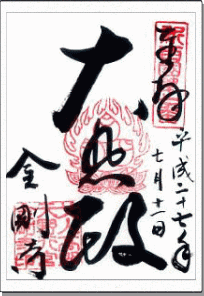 奉拝
平成二十七年
七月十一日
大悲殿
金剛寺